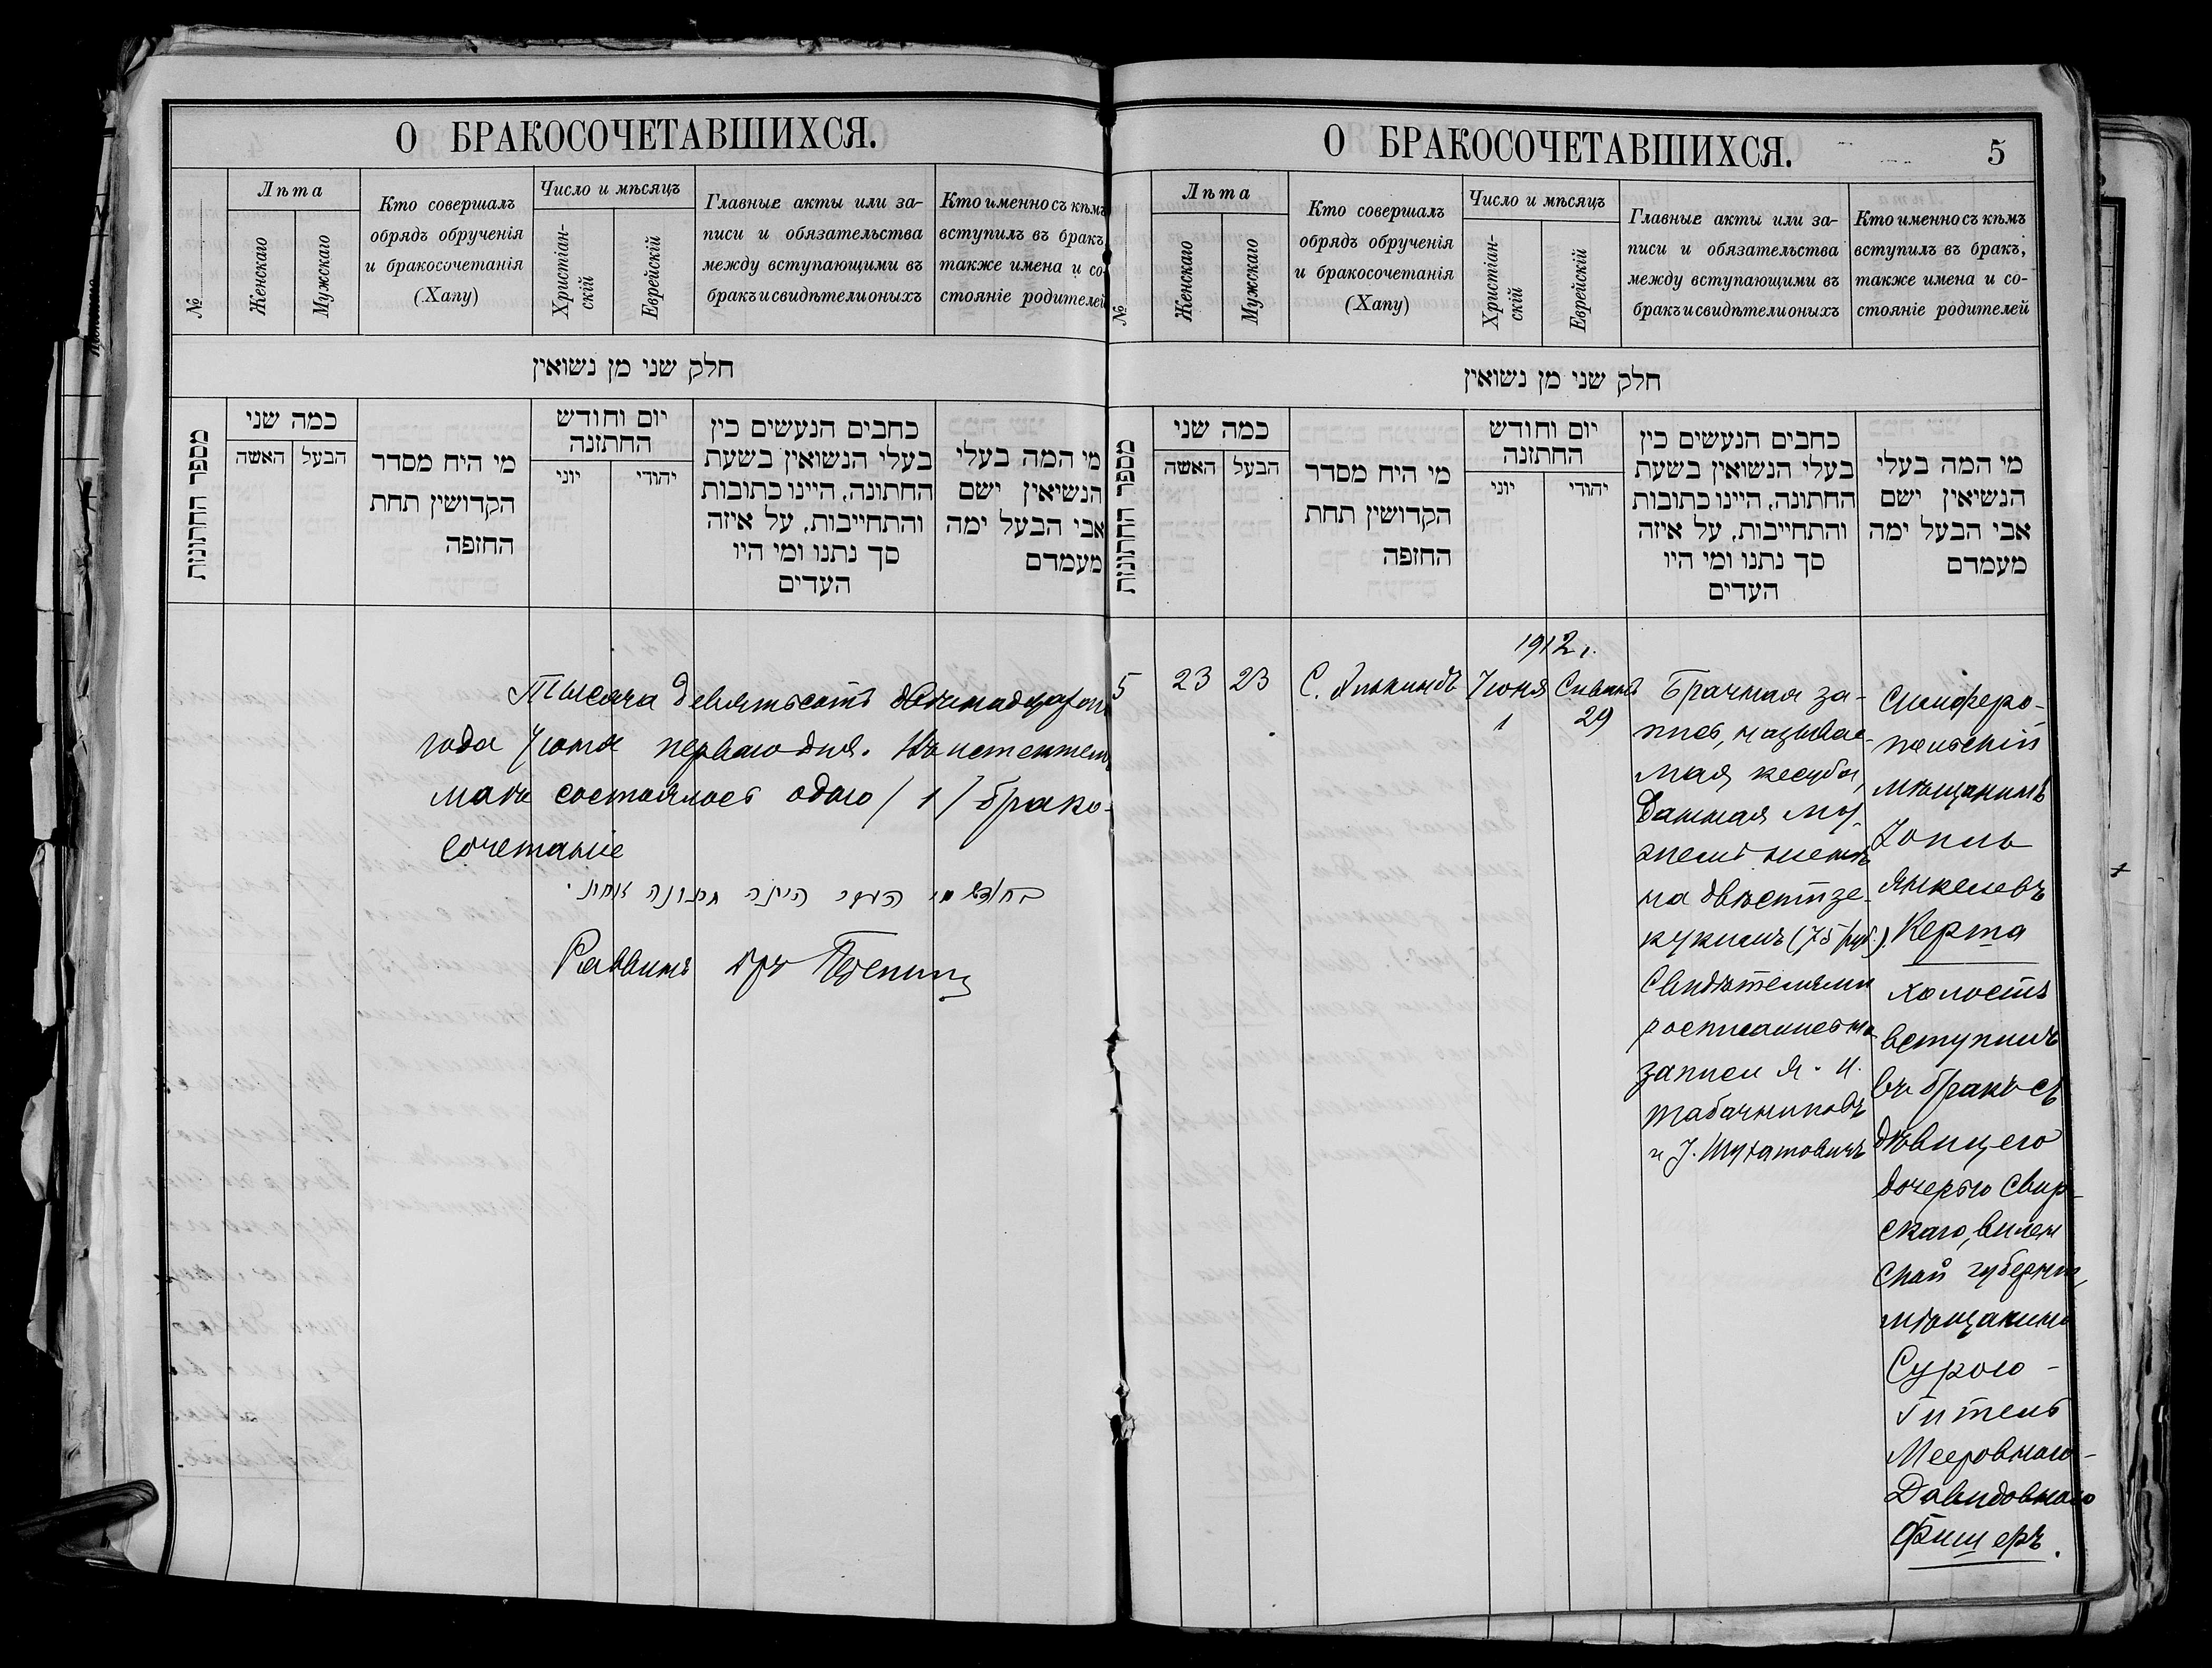 О БРАКОСОЧЕТАВШИХСЯ.
№
Лѣта
Женскаго
Мужскаго
Кто совершалъ
обрядъ обрученія
и бракосочетанія
(Хапу)
Число и мѣсяцъ
Христіан-
скій
Еврейскій
Главные акты или за-
писи и обязательства
между вступающими въ
бракъ и свидѣтели оныхъ
Кто именно съ кѣмъ
вступилъ въ бракъ,
также имена и со-
стояніе родителей
חלק שני מן נשואין
מספר החתונות
כמה שני
האשה
הבעל
מי היח מסדר
הקדושין תחת
החופה
יום וחודש
החתונה
יוני
יהודי
כתבים הנעשים בין
בעלי הנשואין בשעת
החתונה, היינו כתובות
והתחייבות, על איזה
סך נתנו ומי היו
העדים
מי המה בעלי
הנשיאין ישם
אבי הבעל ימה
מעמדם
Тысяча девятьсотъ двѣнадцатаго
года Іюня перваго дня. Въ истекшемъ
маѣ состоялось одно / 1 / брако-
сочетаніе
היינה חתונה אחת.
Раввинъ
О БРАКОСОЧЕТАВШИХСЯ.
5
№
Лѣта
Женскаго
Мужскаго
Кто совершалъ
обрядъ обрученія
и бракосочетанія
(Хапу)
Число и мѣсяцъ
Христіан-
скій
Еврейскій
Главные акты или за-
писи и обязательства
между вступающими въ
бракъ и свидѣтели оныхъ
Кто именно съ кѣмъ
вступилъ въ бракъ,
также имена и со-
стояніе родителей
חלק שני מן נשואין
מספר החתונות
כמה שני
האשה
הבעל
מי היח מסדר
הקדושין תחת
החופה
יום וחודש
החתונה
יוני
יהודי
כתבים הנעשים בין
בעלי הנשואין בשעת
החתונה, היינו כתובות
והתחייבות, על איזה
סך נתנו ומי היו
העדים
מי המה בעלי
הנשיאין ישם
אבי הבעל ימה
מעמדם
1912 г.
5
23
23
С. Элькиндъ
Іюня
1
Сивана
29
Брачная за-
пись, называе-
мая кесуба,
данная му-
жемъ женѣ
на двѣсти зе-
кукимъ (75 руб.)
Свидѣтелями
росписались на
записи Я. И.
Табачниковъ
и І. Шухатовичъ
Симферо-
польскій
мѣщанинъ
Іопль
Янкелевъ
Керта
холостъ
вступилъ
въ бракъ съ
дѣвицею
дочерью Свир-
скаго, Вилен
ской губерніи,
мѣщанина
Сурою-
Гитель
Мееровною-
Давидовною
Фишеръ.